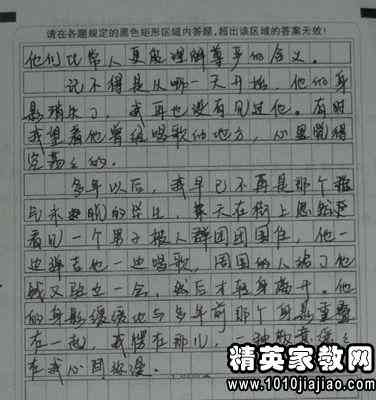 请在各题规定的黑色矩形区域内答题，超出该区域的答案无效！
他们比常人更能理解尊严的含义。
记不得是从哪一天开始，他的身
影消失了，我再也没有见过他。有时
我望着他曾经唱歌的地方，心里觉得
空荡荡的。
多年以后，我早已不再是那个
的学生，某天在街上忽然
看见一个男子被人群团团围住，他一
边弹吉他一边唱歌，周围的人给了他
钱又站立一会，然后才转身离开。他
的身影缓缓地与多年前那个身影重叠
在一起，我愣在那儿，一种敬意缓缓
在我心间弥漫。
精英家教网
www.1010jiajiao.com